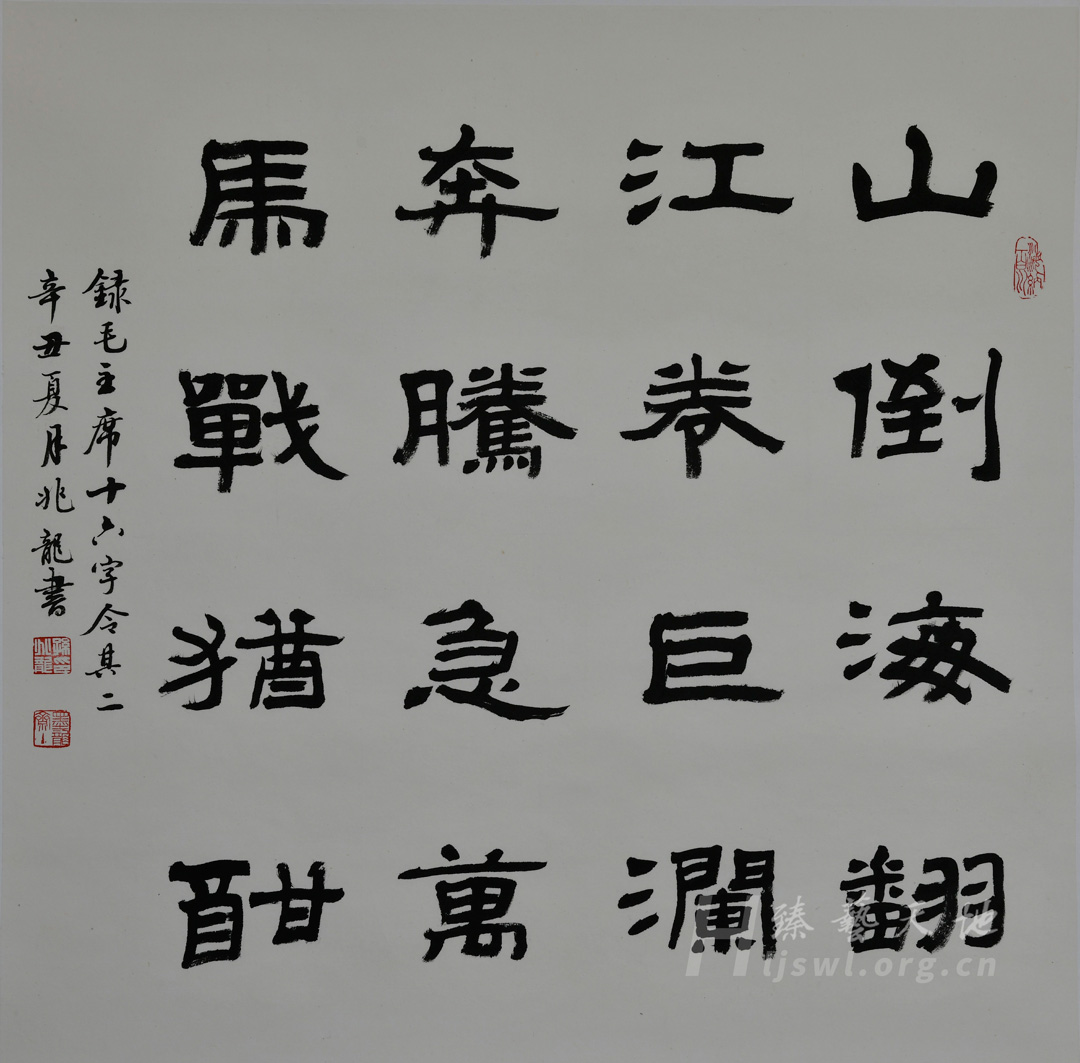 山倒海翻
江卷巨瀾
奔騰急萬
馬戰猶酣
録毛主席十六字令其二
辛丑夏月兆龍書
臻藝天地
tjswl.org.cn